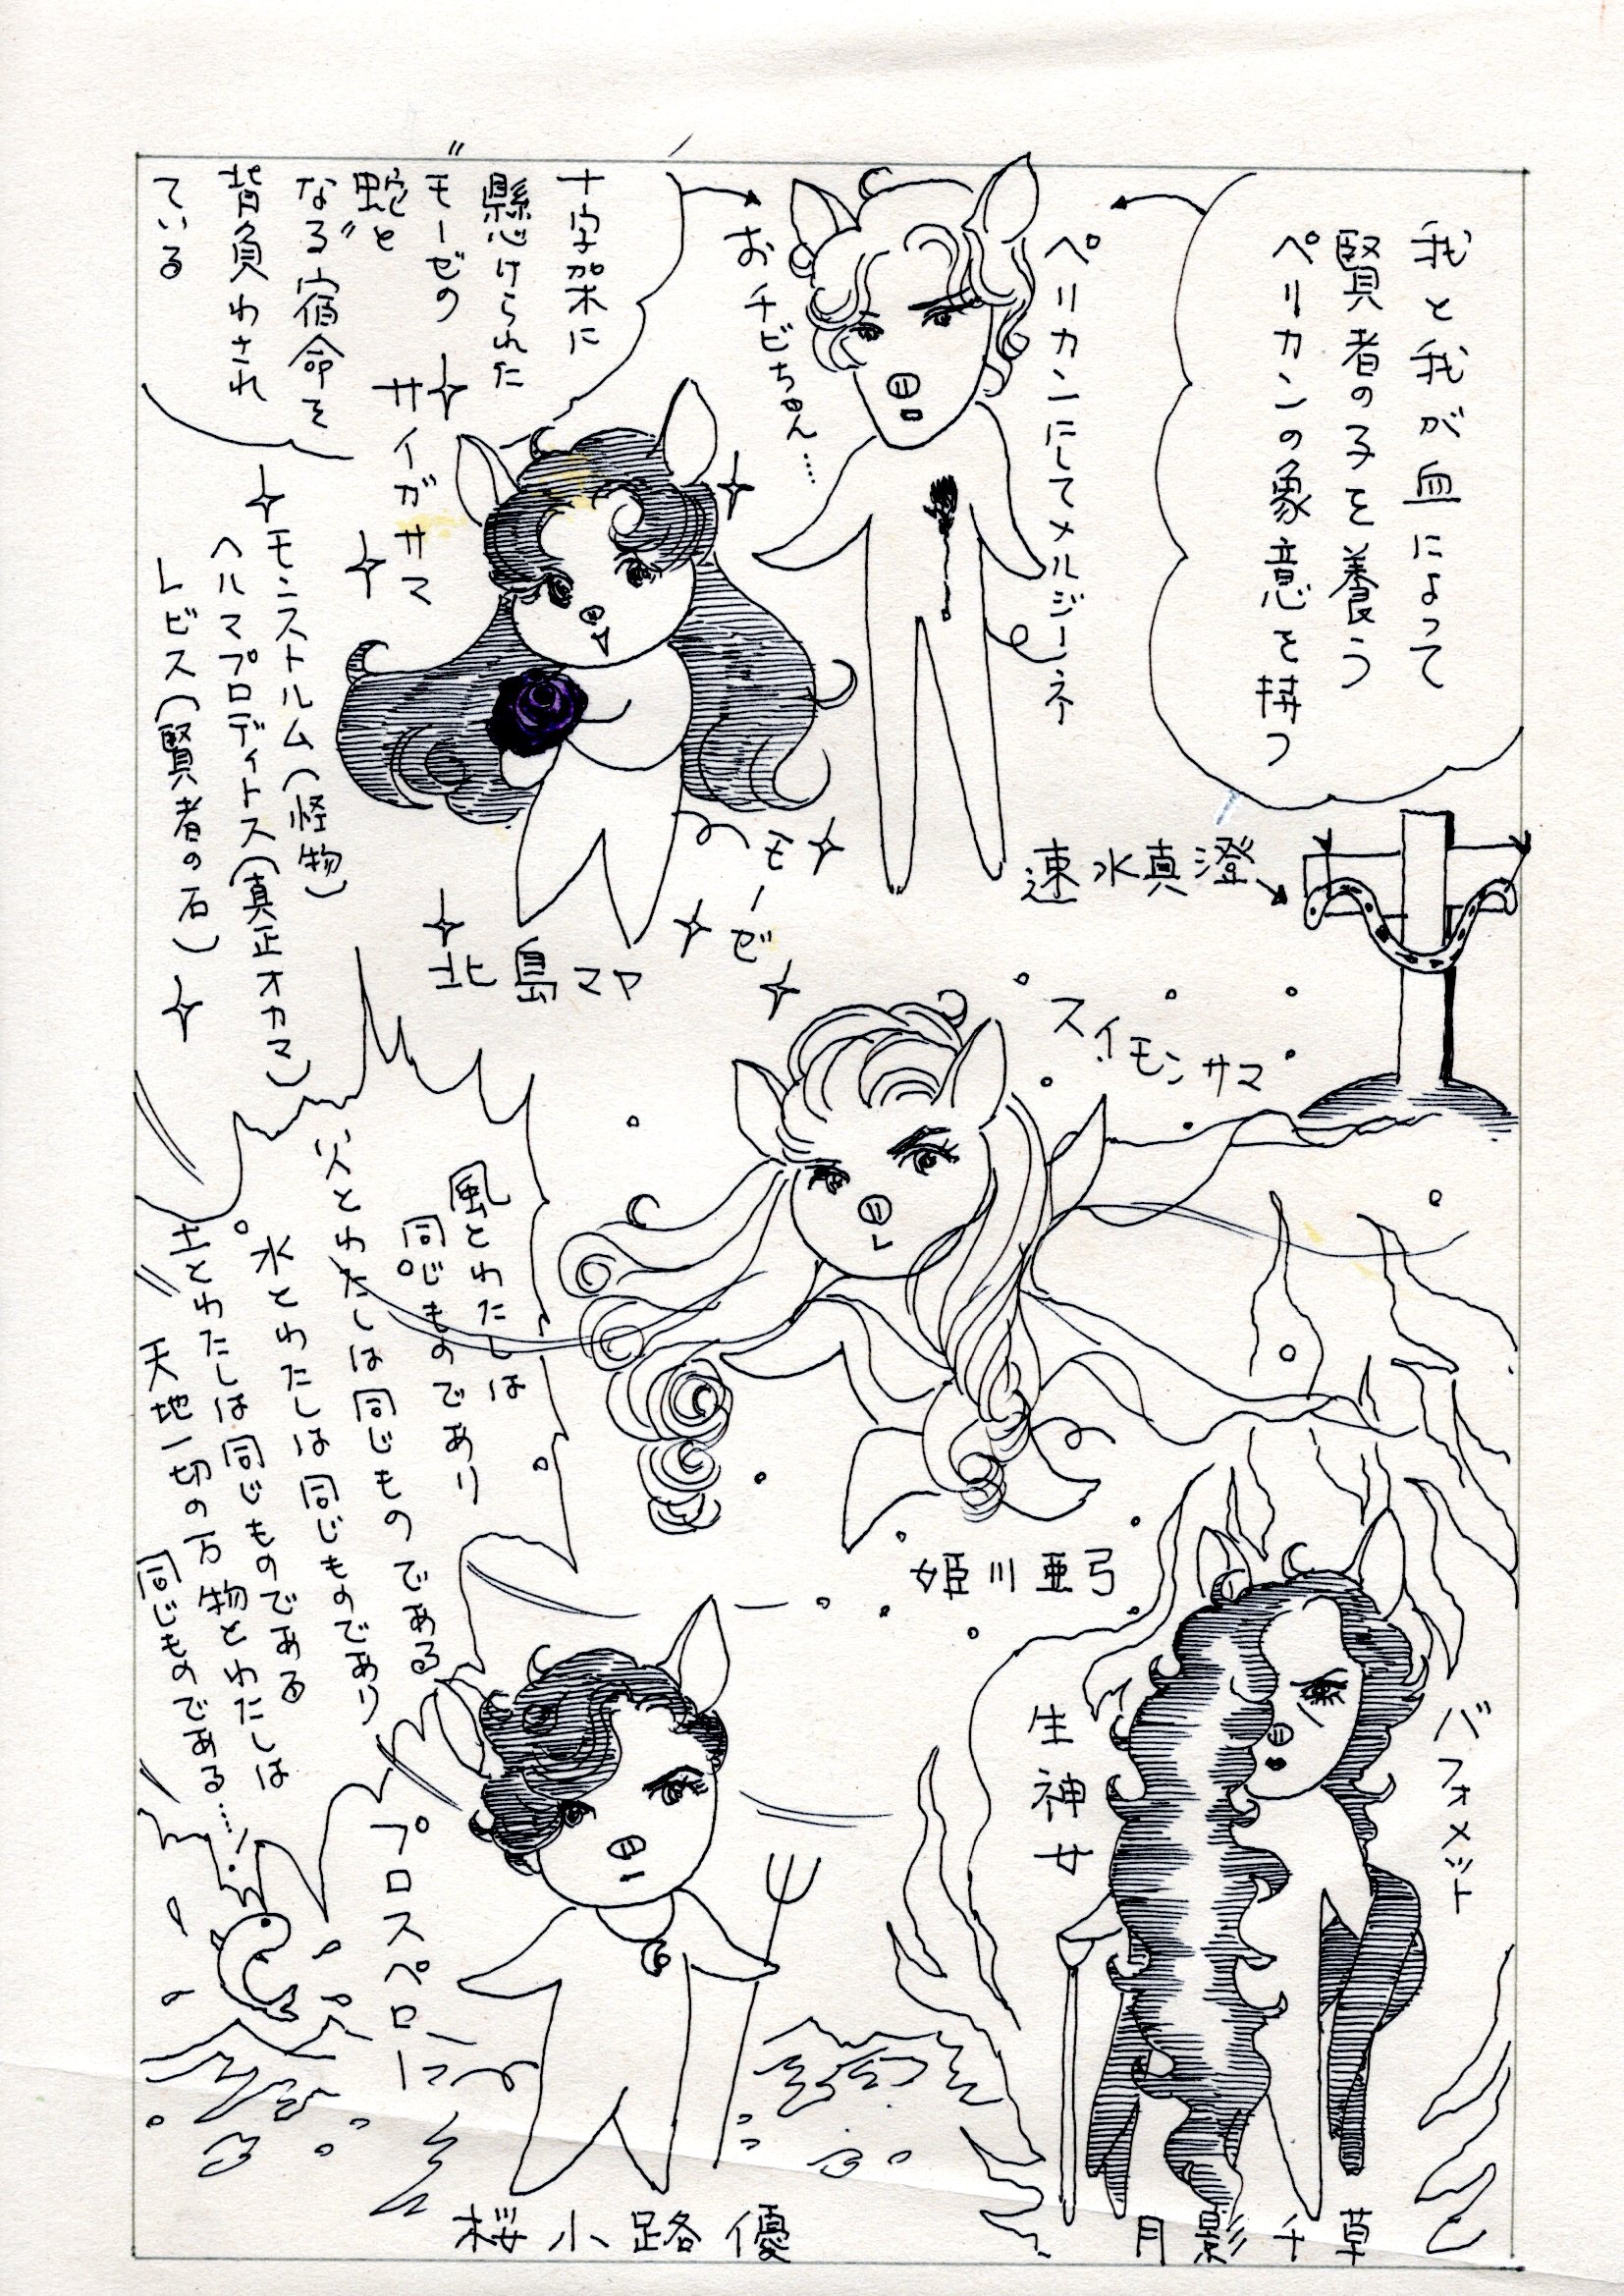 我と我が血によって
賢者の子を養う
ペリカンの象意を持つ
ペリカンにしてメルジーネ
おチビちゃん…
十字架に
懸けられた
"モーゼの
蛇"と
なる宿命を
背負わされ
ている
サイガサマ
モンストルム(怪物)
ヘルマプロディトス(真正オカマ)
レビス(賢者の石)
モーゼ
北島マヤ
速水真澄
スイモンサマ
風とわたしは
同じものであり
火とわたしは同じものである
水とわたしは同じものであり
土とわたしは同じものである
天地一切の万物とわたしは
同じものである…
姫川亜弓
バフォメット
生神女
プロスペロー
桜小路優
月影千草